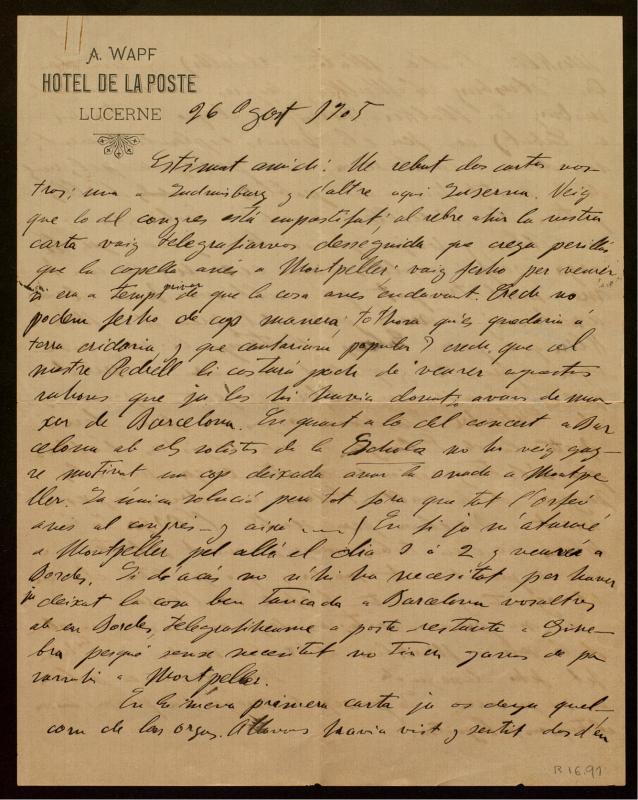 A. WAPF
HOTEL DE LA POSTE
LUCERNE
26 Agost 1905
Estimat amich: He rebut dos cartas vos
tras; una a y l'altre aqui Luserna. Veig
que lo del congres está empastifat; al rebre ahir la vostra
carta vaig telegrafiarvos desseguida que crega perillós
que la capella anés a Montpeller: vaig ferho per veurer
si era a temps privar de que la cosa anes endavant. Crech no
podem ferho de cap manera; tothom qu'es quedaria á
terra cridaria, y que cantariam populars? crech que al
mestre Pedrell li costará poch de veurer aquestas
rahons que ja las hi havia donat avans de mar
xar de Barcelona. En quant a lo del concert a Bar
celona ab els solistes de la Schola no hi veig gay
re motivat un cop deixada anar la anada a Montpe
ller. La única solució per tot fora que tot l'Orfeó
anes al congrés - y aixó ......! En fi jo m'aturaré
a Montpeller pel allá el dia 1 ó 2 y veuré a
Bordes. Si de cás no n'hi ha necesitat per haver
ja deixat la cosa ben tancada a Barcelona vosaltres
ab en Bordes, telegrafiheume a poste restante a Gine
bra perqué sense necesitat no tinch ganas de pa
rarmhi a Montpeller.
En la meva primera carta ja os deya quel
com de los orgas. Allavors havia vist y sentit dos d'en
R 16.91